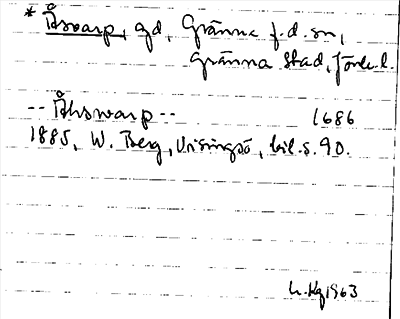 * Åswarp, gd, Gränna f.d. sn,
Gränna stad, Jönk. l.
-- Åhswarp --   1686
1885, W. Berg, Visingsö, bil. s. 90.
1963